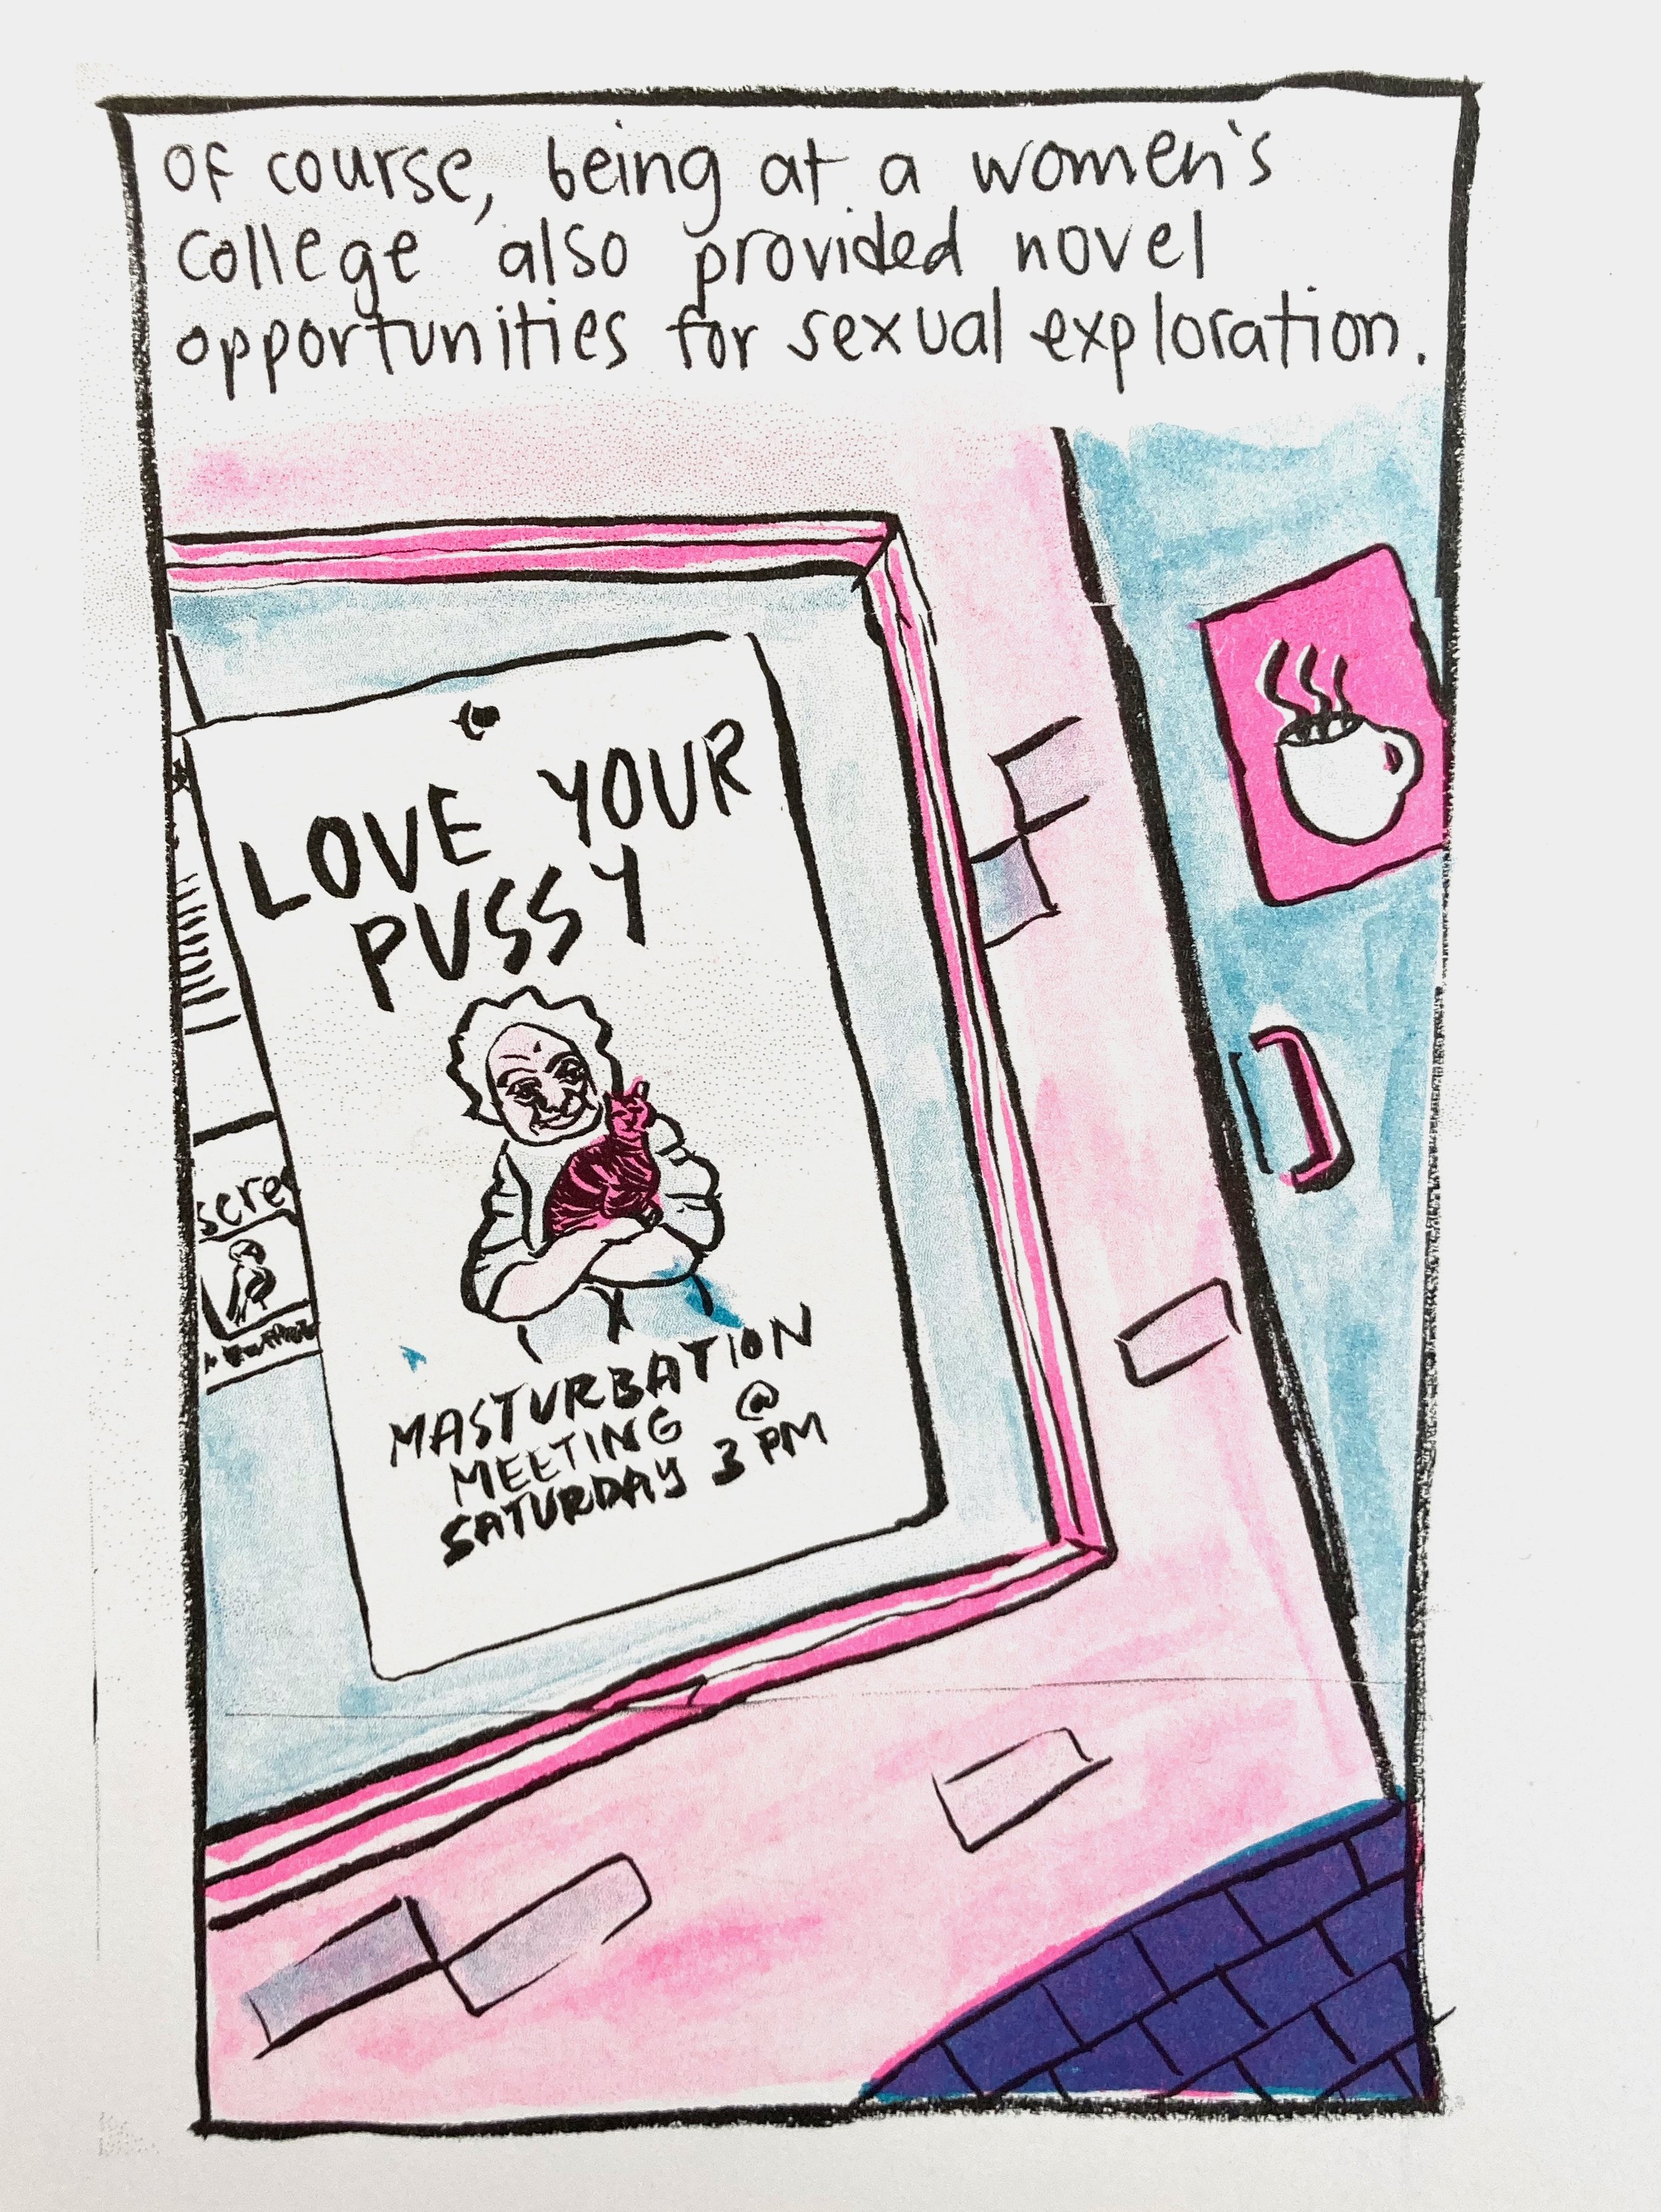 of course, being at a women's
college also provided novel
opportunities for sexual exploration.
LOVE YOUR
PUSSY
scre
MASTURBATION
MEETING @
SATURDAY 3 PM